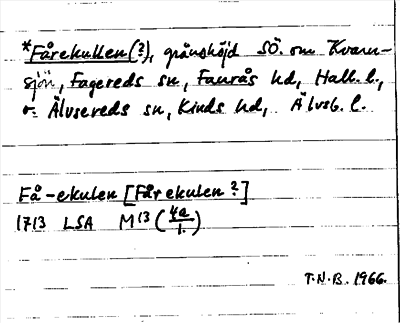 *Fårekullen(?), gränshöjd SÖ. om Kvarn-
sjön, Fagereds sn, Faurås hd, Hall. l.,
o. Älvsereds sn, Kinds hd, Älvsb. l.
Få-ekulen [Fårekulen?]
1713 LSA M13 (4a/1.)
T.N.B. 1966.